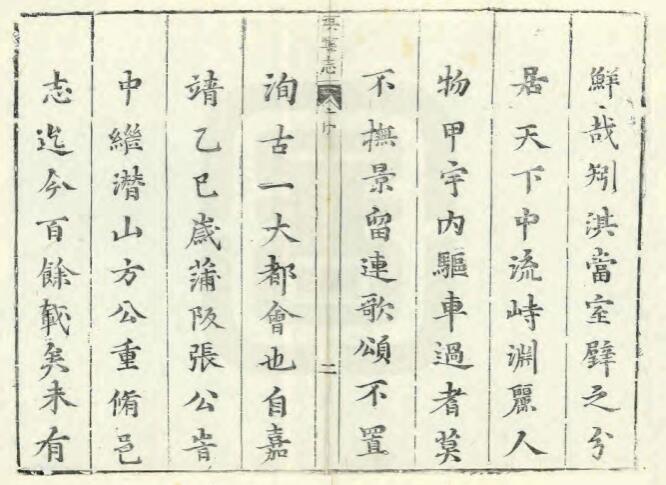 鮮哉矧淇當室壁之分
居天下中流峙淵麗人
物甲宇内驅車過者莫
不撫景留連歌頌不置
淇縣志 序 二
洵古一大都會也自嘉
靖乙巳歲蒲阪張公
中繼潜山方公重脩邑
志迄今百餘載矣未有